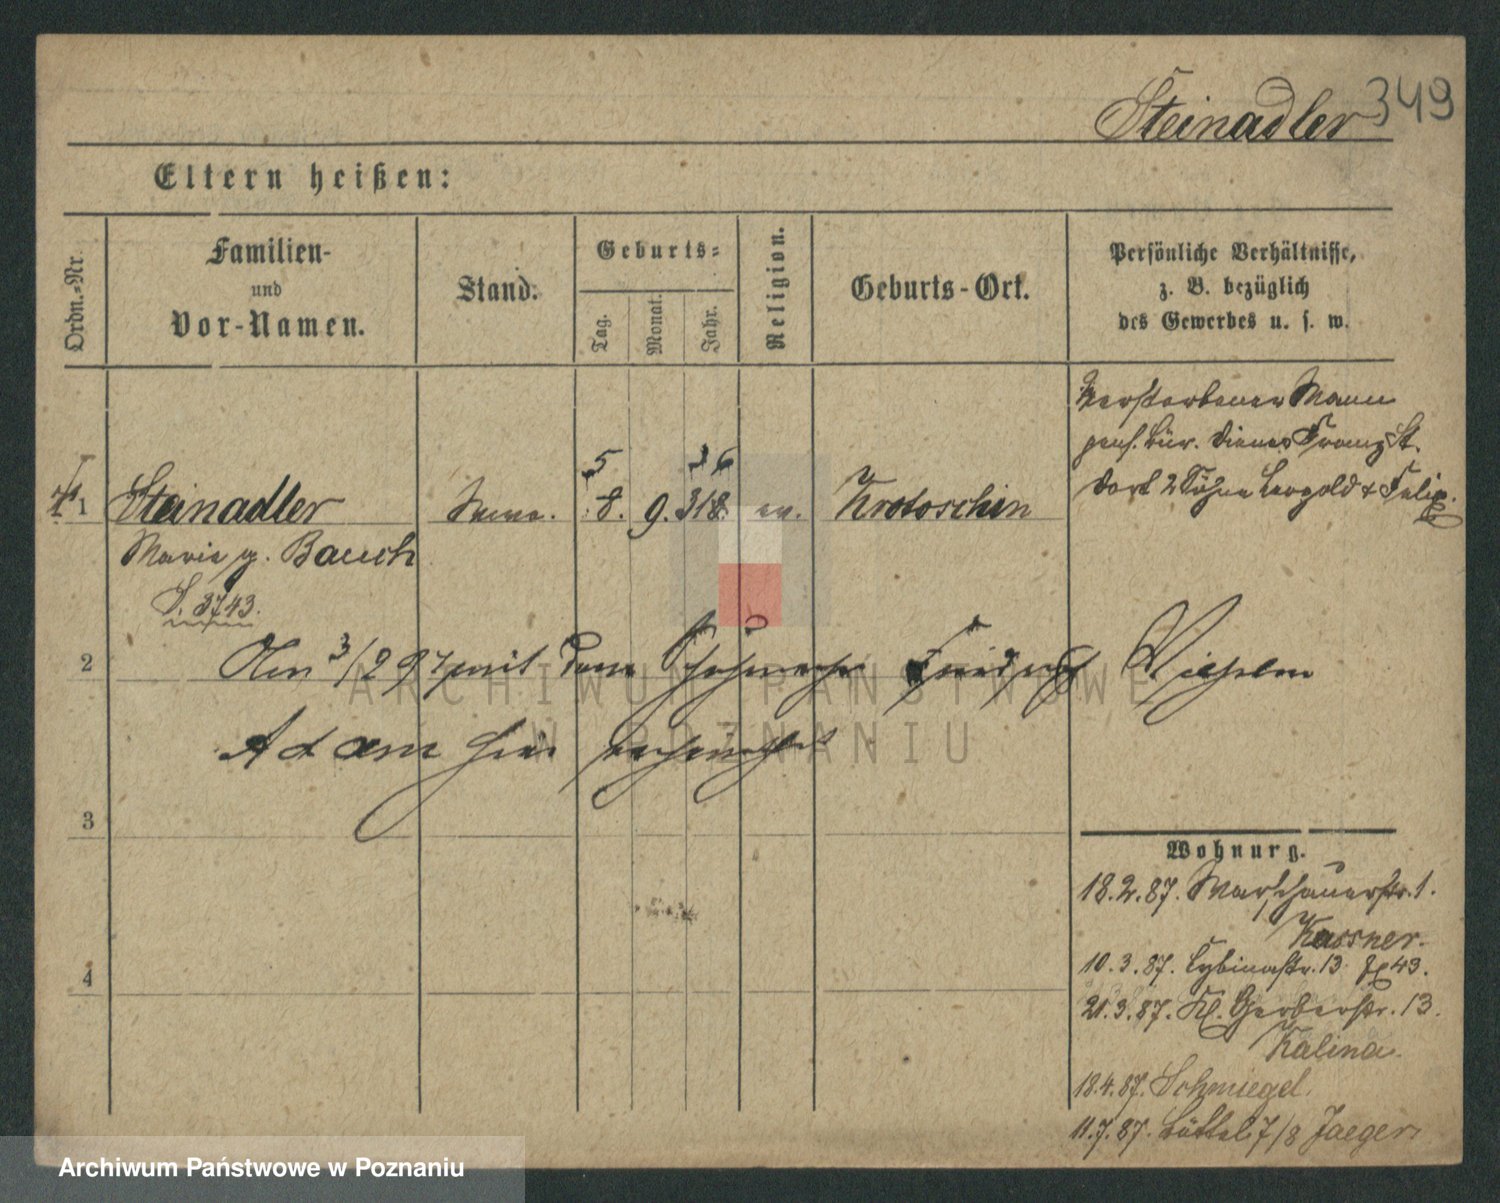 Steinadler 349
Eltern heißen:
Ordn.-Nr.
Familien-
und
Vor-Namen.
Stand.
Geburts-
Tag.
Monat.
Jahr.
Religion.
Geburts-Ort.
Persönliche Verhältnisse,
z. B. bezüglich
des Gewerbes u. s. w.
Verstorbener Mann
pens. Bür. Diener Franz St.
dort 2 Söhne Leopold & Felix.
5 36
1 Steinadler Wwe. 8. 9. 318 ev. Krotoschin
Marie g. Bauch
S. 3743.
2 Am 3/2 97 mit dem Friedrich Wilhelm
Adam hier verheirathet
3
Wohnung.
18.2.87. Warschauerstr. 1.
Kassner.
10.3.87. Cybinastr. 13 43.
21.3.87. Kl. Gerberstr. 13.
Kalina.
4
18.4.87. Schmiegel.
11.7.87. Büttel. 7/8 Jaeger
ARCHIWUM PAŃSTWOWE
W POZNANIU
Archiwum Państwowe w Poznaniu